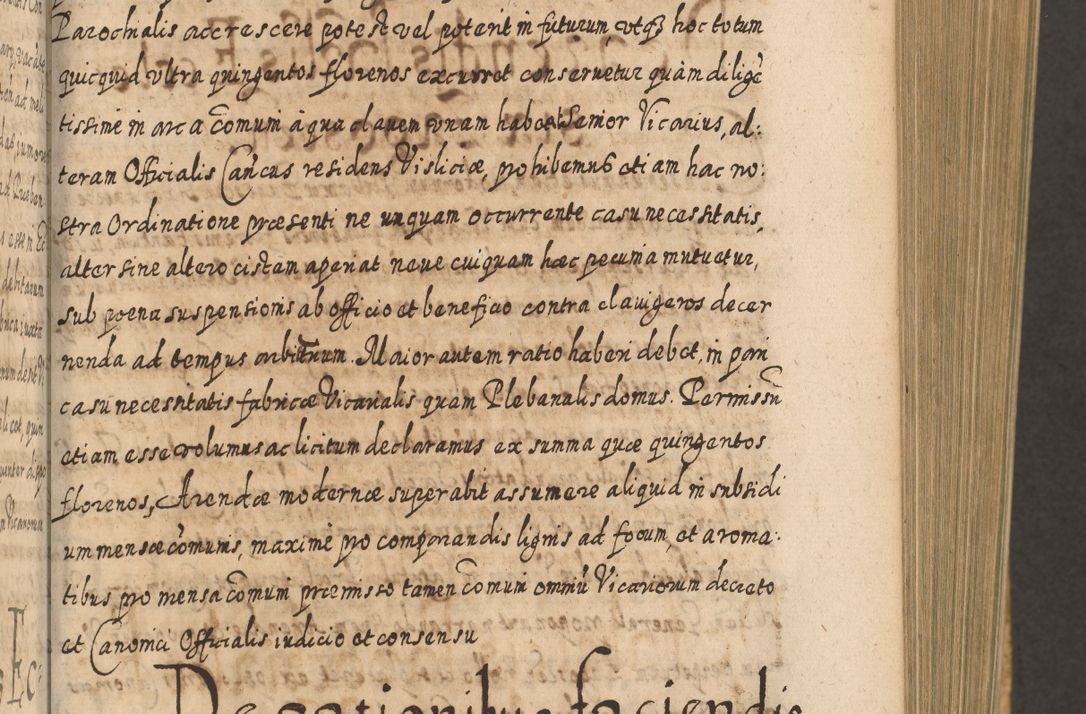 Parochialis accrescere potest vel poterit in futurum, vtq3 hoc totum
quicquid vltra quingentos florenos excurret conseruetur quàm diligē
tissime in arca cōmuni à qua clauem vnam habeat Senior Vicarius, al:
teram Officialis Cancus residens Visliciæ, prohibemus etiam hac no:
stra Ordinatione præsenti ne unquam occurrente casu necessitatis,
alter sine altero cistam aperiat neue cuiquam hæc pecunia mutuetur,
sub poena suspensionis ab officio et beneficio contra clauigeros decer
nenda ad tempus arbitrium. Maior autem ratio haberi debet, in pari
casu necessitatis fabricæ Vicarialis quam Plebanalis domus. Permissū
etiam esse volumus ac licitum declaramus ex summa quæ quingentos
florenos, Arendæ modernæ superabit assumere aliquid in subsidi
um mensæ cōmunis, maximè pro comparandis lignis ad focum, et aroma:
tibus pro mensa cōmuni præmisso tamen cōmuni omniū Vicariorum decreto
et Canonici Officialis iudicio et consensu
De rationibus faciendis